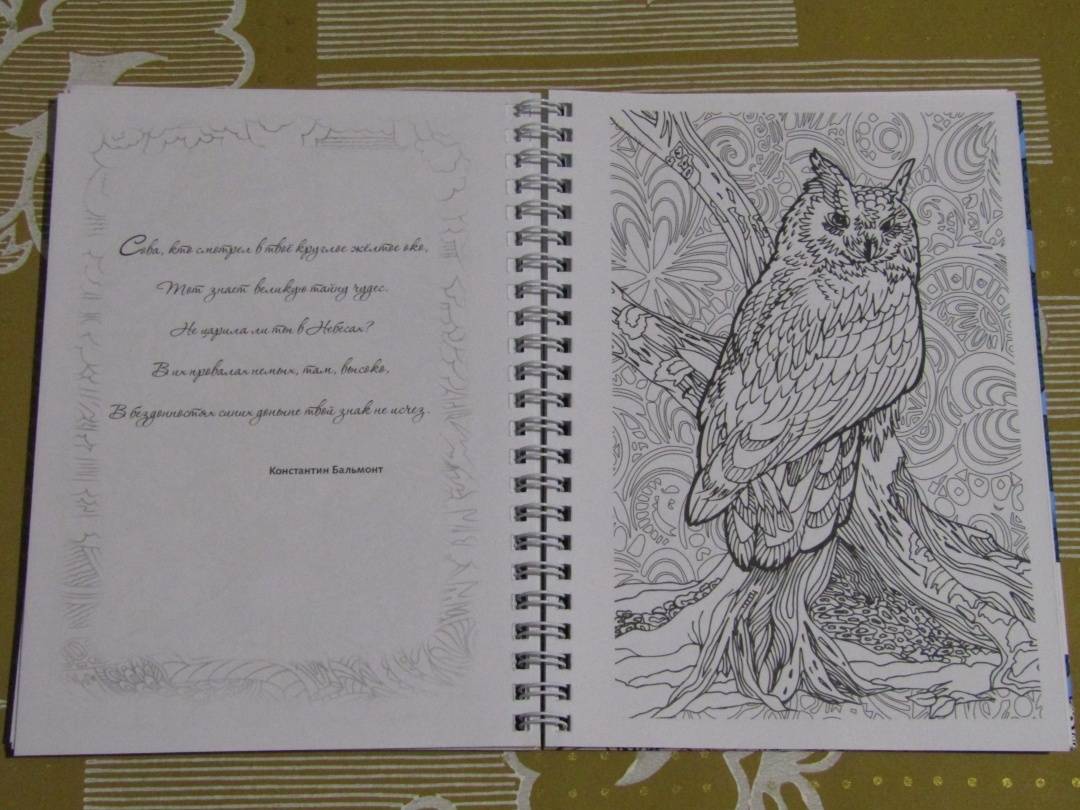 Сова, кто смотрел в твоё круглое жёлтое око,
Тот знает великую тайну чудес.
Не царила ли ты в Небесах?
В их провалах немых, там, высоко,
В бездонностях синих доныне твой знак не исчез.
Константин Бальмонт